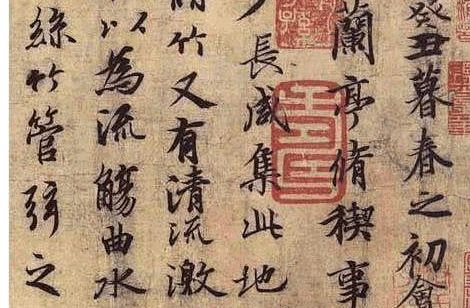 癸丑暮春之初會
蘭亭脩稧事
長咸集此地
竹又有清流激
以為流觴曲水
絲竹管弦之